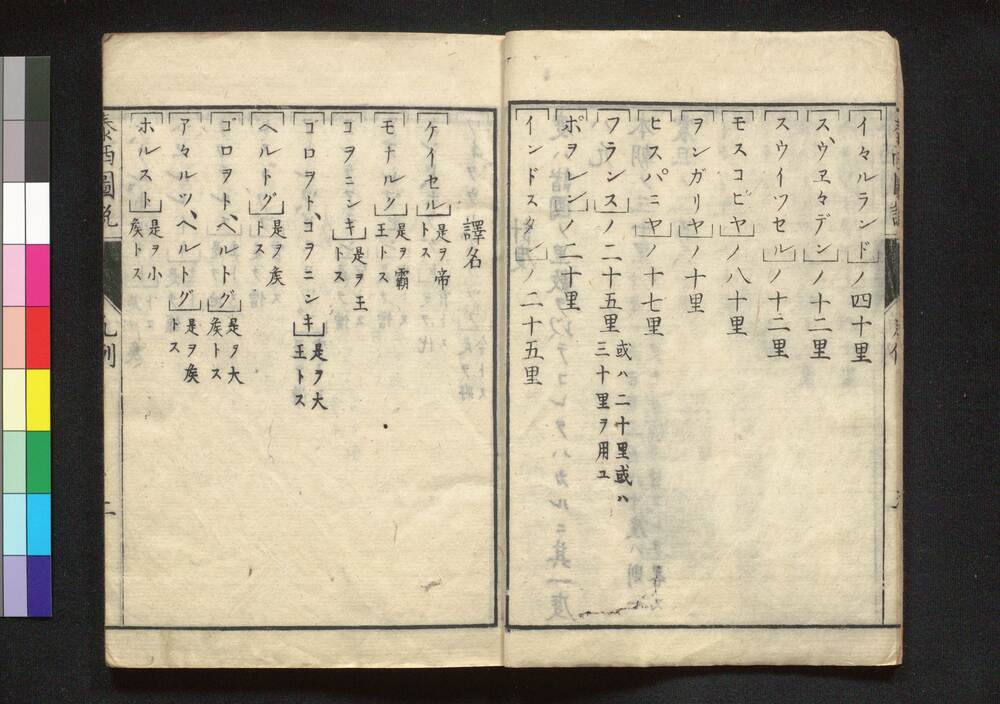 イ々ルランドノ四十里
スヽウヱ々デンノ十二里
スウイツセルノ十二里
モスコビヤノ八十里
ヲンガリヤノ十里
ヒスパニヤノ十七里
フランスノ二十五里 或ハ二十里或ハ
三十里ヲ用ユ
ポヲレンノ二十里
インドスタンノ二十五里
譯名
ケイセル 是ヲ帝
トス
モナルク 是ヲ霸
王トス
コヲニンキ 是ヲ王
トス
ゴロヲトヽコヲニンキ 是ヲ大
王トス
ヘルトグ 是ヲ矦
トス
ゴロヲトヽヘルトグ 是ヲ大
矦トス
ア々ルツヽヘルトグ 是ヲ矦
トス
ホルスト 是ヲ小
矦トス
泰西圖説
凡例